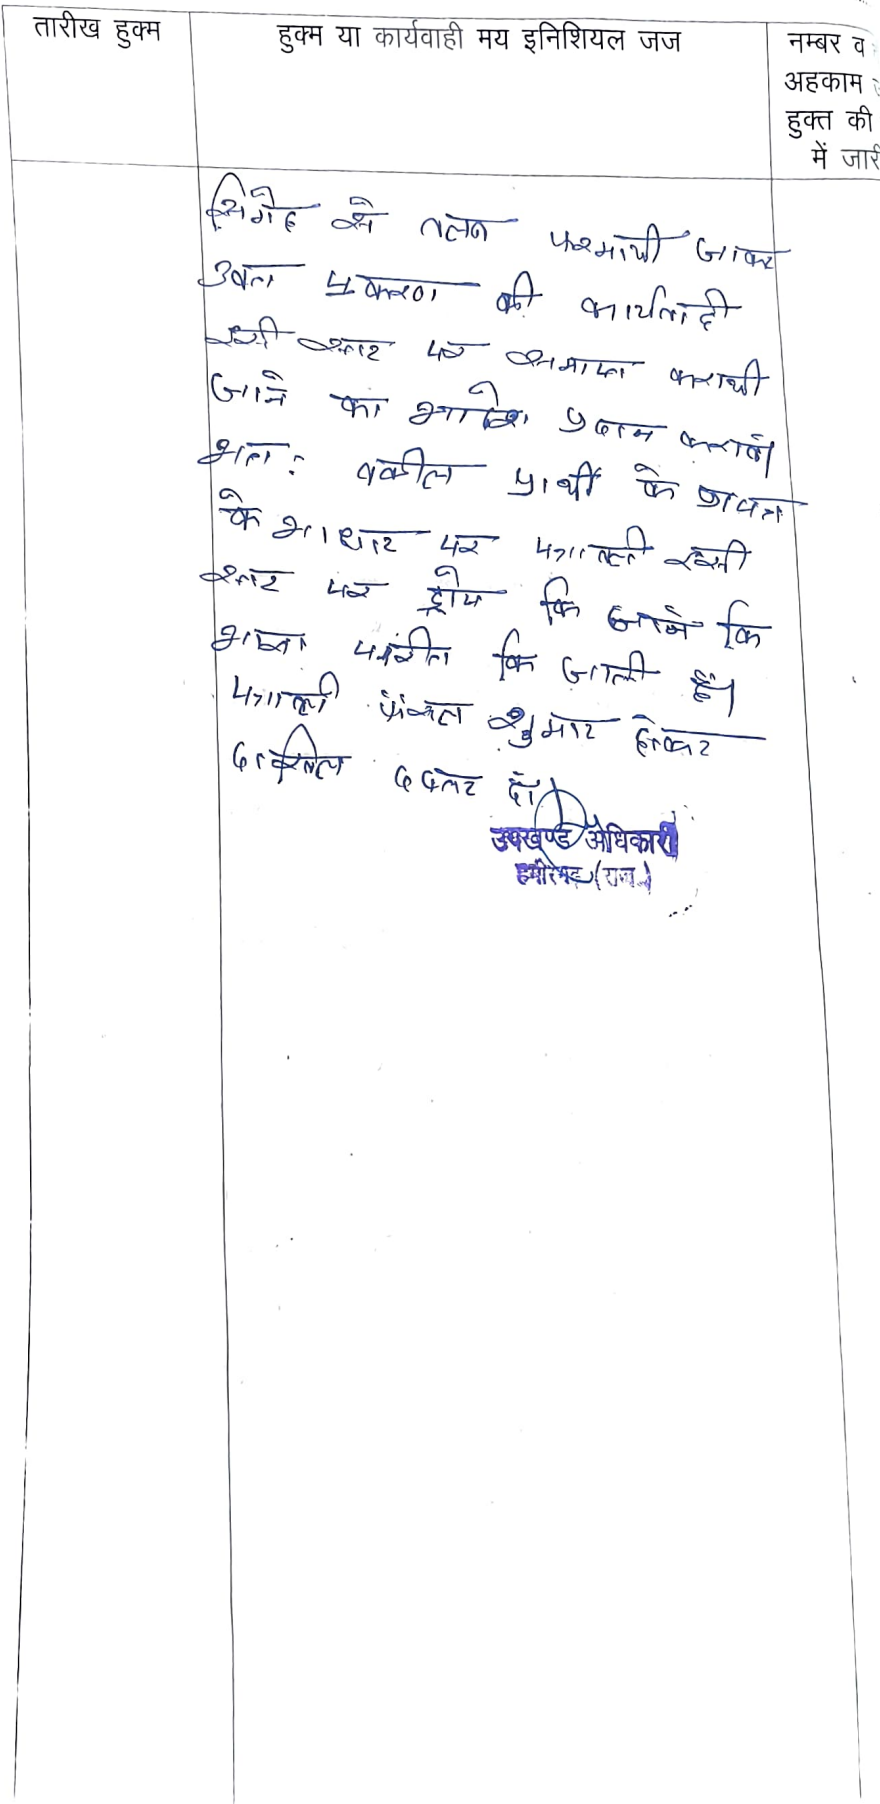 तारीख हुक्म
हुक्म या कार्यवाही मय इनिशियल जज
नम्बर व
अहकाम
हुक्त की
में जारी
सिगेह से तलब फरमायी जाकर
उक्त प्रकरण की कार्यवाही
इसी स्तर पर समाप्त करायी
जाने का आदेश प्रदान करावें।
अतः वकील प्रार्थी के कथन
के आधार पर पत्रावली इसी
स्तर पर ड्रोप कि जाने कि
आज्ञा पारीत कि जाती हैं।
पत्रावली फैसल शुमार होकर
दाखिल दफ्तर हों।
उपखण्ड अधिकारी
हमीरगढ़ (राज.)